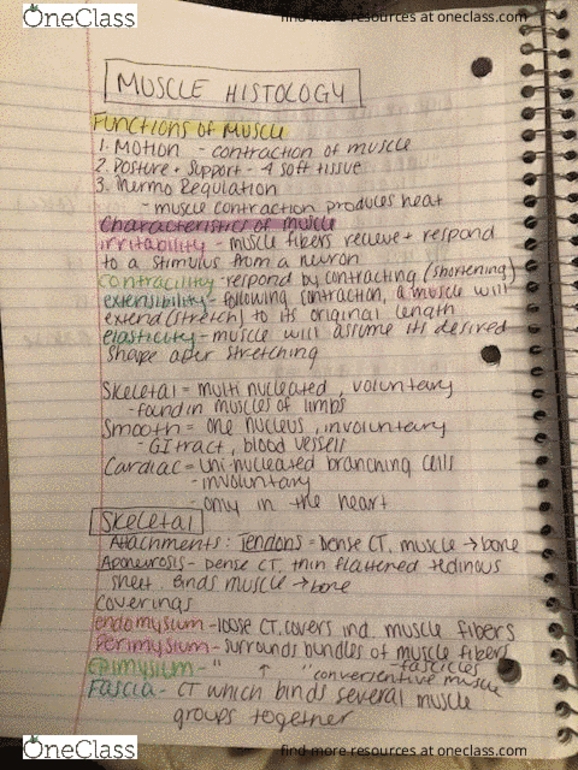 OneClass
find more resources at oneclass.com
MUSCLE HISTOLOGY
Functions of Muscle
1. Motion - contraction of muscle
2. Posture + Support - 4 soft tissue
3. Thermo Regulation
- muscle contraction produces heat
Characteristics of muscle
irritability - muscle fibers recieve + respond
to a stimulus from a neuron
contracility - respond by contracting (shortening)
extensibility - following contraction, a muscle will
extend (stretch) to its original length
elasticity - muscle will assume its desired
shape after stretching
Skeletal = multi nucleated, voluntary
- found in muscles of limbs
Smooth = one nucleus, involuntary
- GI tract, blood vessels
Cardiac = uni-nucleated branching cells
- involuntary
- only in the heart
Skeletal
Attachments: Tendons = Dense CT, muscle → bone
Aponeurosis - Dense CT, thin flattened tedinous
sheet. Binds muscle → bone
coverings
endomysium - loose CT, covers ind. muscle fibers
Perimysium - surrounds bundles of muscle fibers
- fascicles
epimysium - " ↑ " muscle
Fascia - CT which binds several muscle
groups together
OneClass
find more resources at oneclass.com